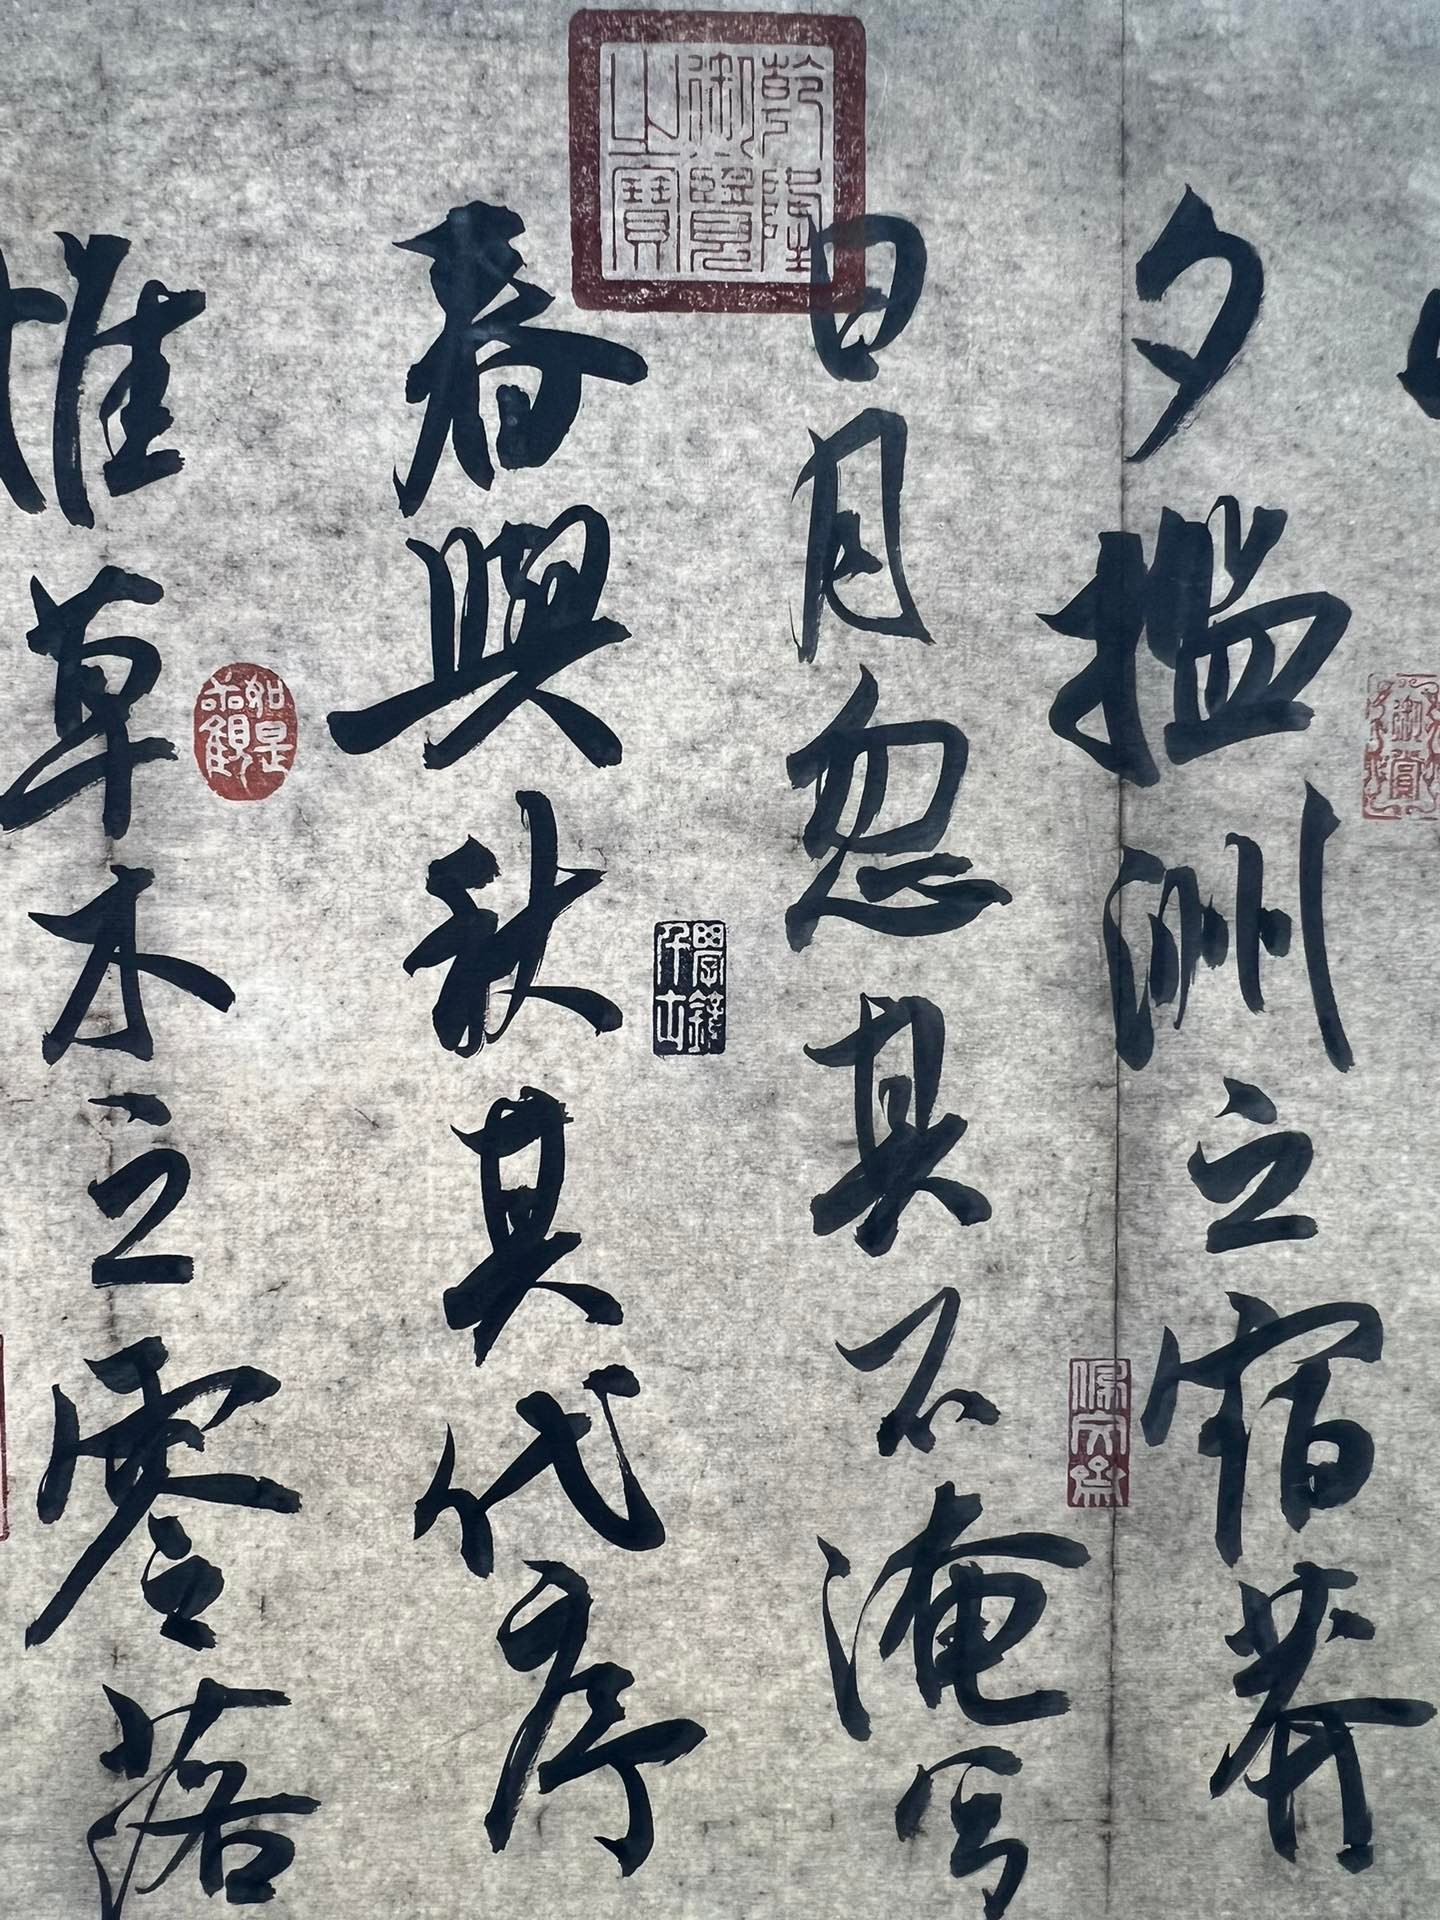 夕揽洲之宿莽
日月忽其不淹兮
春與秋其代序
惟草木之零落
乾隆御覽之寶
御賞
如是